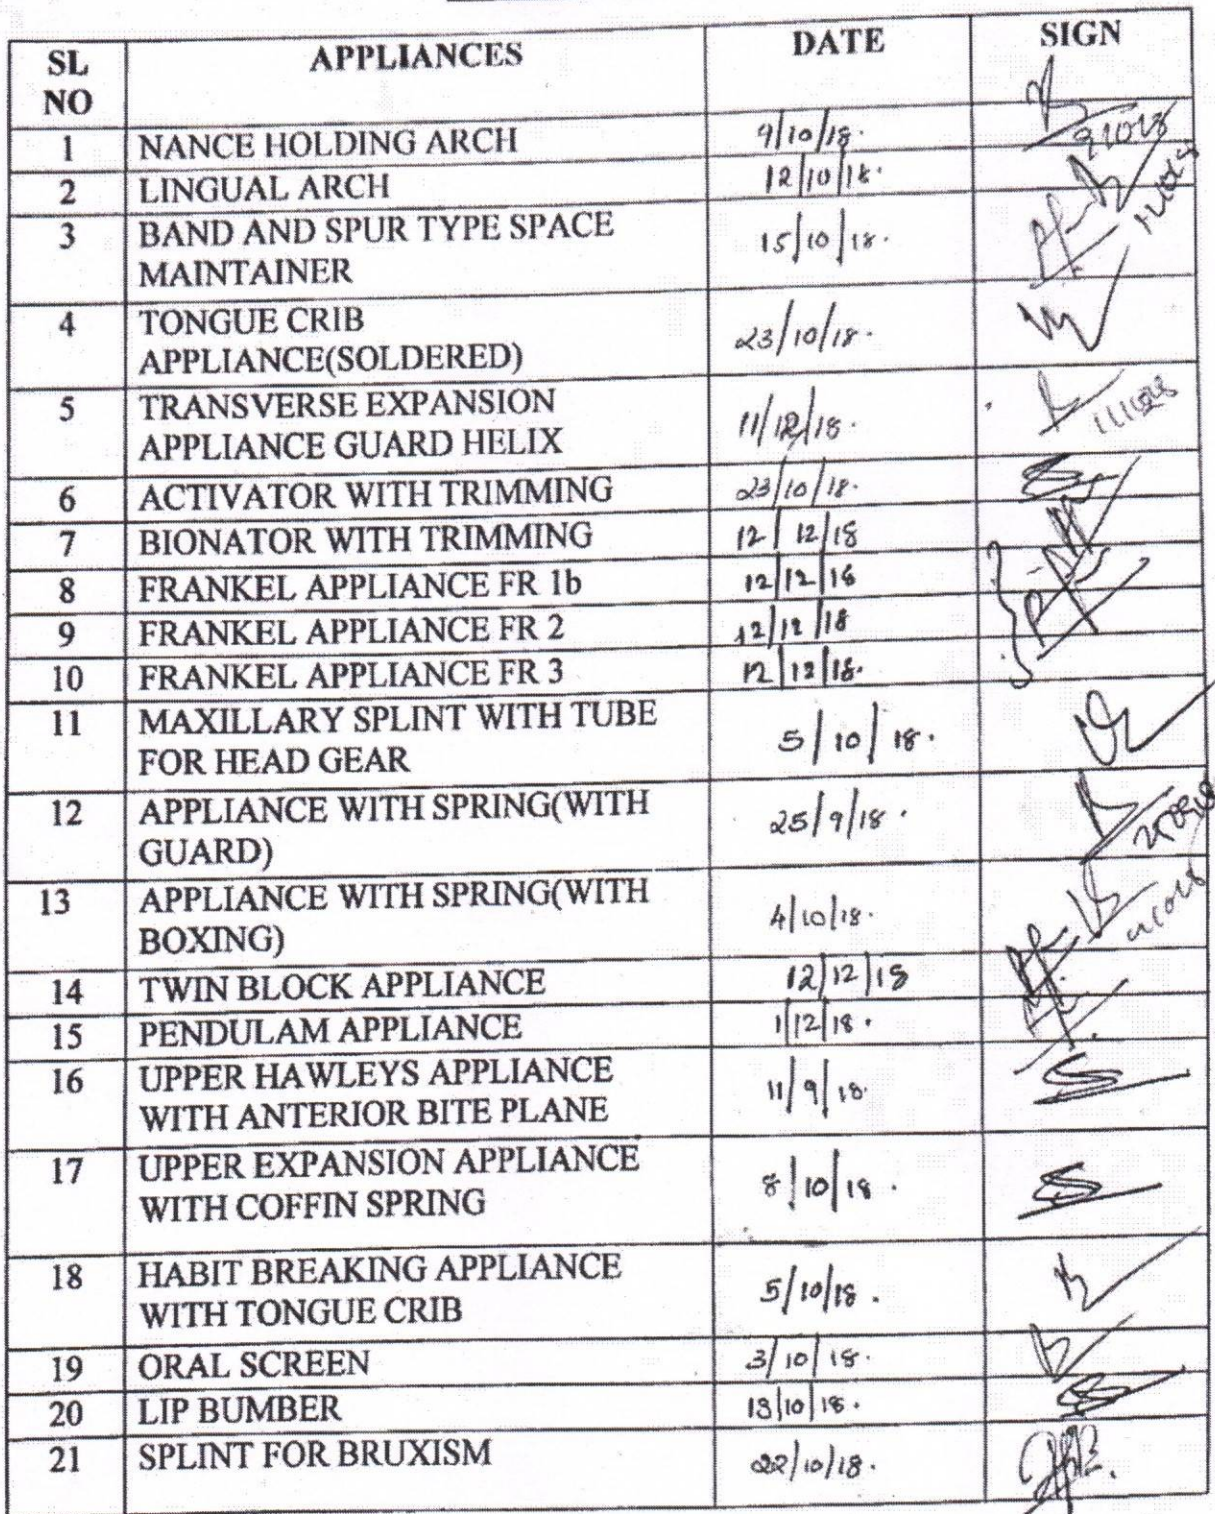 SL NO APPLIANCES DATE SIGN
1 NANCE HOLDING ARCH 9/10/18.
2 LINGUAL ARCH 12/10/18.
3 BAND AND SPUR TYPE SPACE
MAINTAINER 15/10/18.
4 TONGUE CRIB
APPLIANCE(SOLDERED) 23/10/18.
5 TRANSVERSE EXPANSION
APPLIANCE GUARD HELIX 11/12/18.
6 ACTIVATOR WITH TRIMMING 23/10/18.
7 BIONATOR WITH TRIMMING 12/12/18
8 FRANKEL APPLIANCE FR 1b 12/12/18
9 FRANKEL APPLIANCE FR 2 12/12/18
10 FRANKEL APPLIANCE FR 3 12/12/18.
11 MAXILLARY SPLINT WITH TUBE
FOR HEAD GEAR 5/10/18.
12 APPLIANCE WITH SPRING(WITH
GUARD) 25/9/18.
13 APPLIANCE WITH SPRING(WITH
BOXING) 4/10/18.
14 TWIN BLOCK APPLIANCE 12/12/18
15 PENDULAM APPLIANCE 1/12/18.
16 UPPER HAWLEYS APPLIANCE
WITH ANTERIOR BITE PLANE 11/9/18.
17 UPPER EXPANSION APPLIANCE
WITH COFFIN SPRING 8/10/18.
18 HABIT BREAKING APPLIANCE
WITH TONGUE CRIB 5/10/18.
19 ORAL SCREEN 3/10/18.
20 LIP BUMBER 13/10/18.
21 SPLINT FOR BRUXISM 22/10/18.